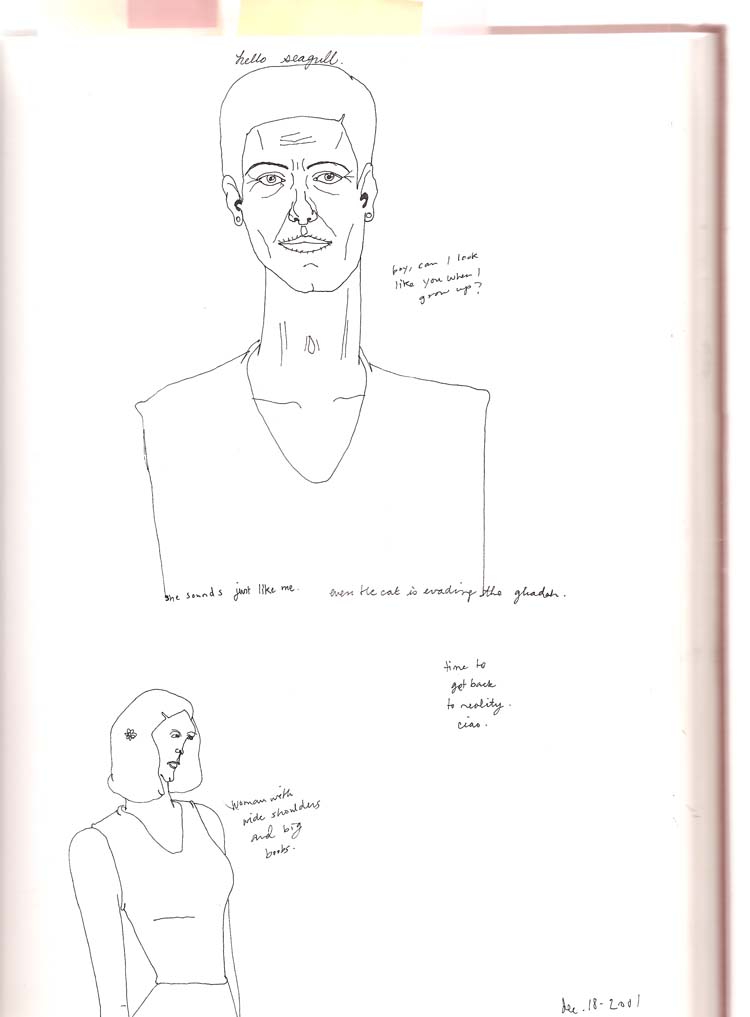 hello seagull.
boy, can I look
like you when I
grow up?
she sounds just like me. even the cat is evading the
time to
get back
to reality.
ciao.
Woman with
wide shoulders
and big
boobs.
dec. 18 - 2001